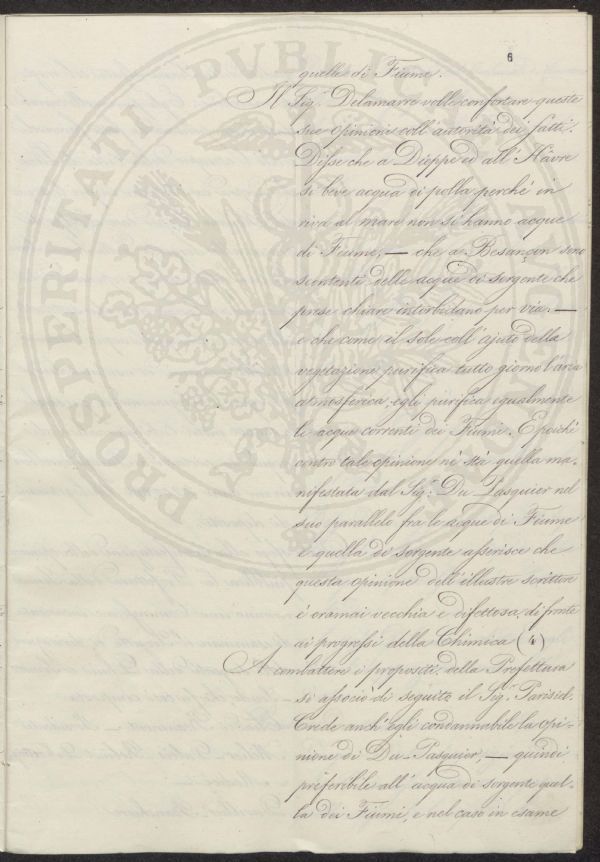 6
quelle di Fiume.
Il Sig.r Delamarre volle confortare queste
sue opinioni coll'autorità dei fatti.
Disse che a Dieppe ed all'Hâvre
si beve acqua di polla perché in
riva al mare non si hanno acque
di Fiume, — che a Besançon sono
scontenti delle acque di sorgente che
prese chiare intorbidano per via —
e che come il sole coll'ajuto della
vegetazione purifica tutto giorno l'aria
atmosferica, egli purifica egualmente
le acque correnti dei Fiumi. E poiché
contro tale opinione né stà quella ma-
nifestata dal Sig.r Du Pasquier nel
suo parallelo fra le acque di Fiume
e quella di sorgente asserisce che
questa opinione dell'illustre scrittore
é oramai vecchia e difettosa, di fronte
ai progressi della Chimica (4)
A combattere i propositi della Prefettura
si associò di seguito il Sig.r Parisel.
Crede anch'egli condannabile la opi-
nione di Du-Pasquier, — quindi
preferibile all'acqua di sorgente quel-
la dei Fiumi, e nel caso in esame
PROSPERITATI PVBLICAE